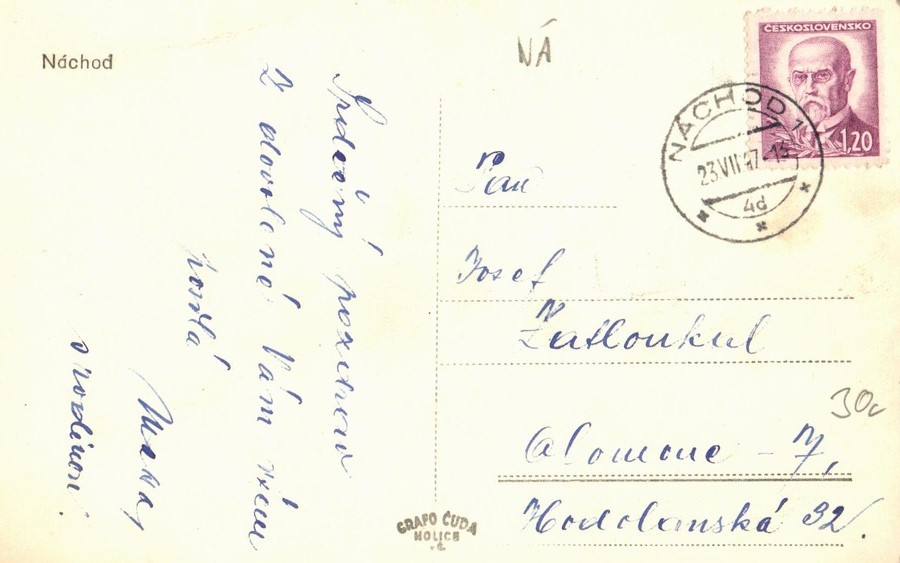 Náchod
NÁ
ČESKOSLOVENSKO
1,20
NÁCHOD 1
23.VII.47-15
4d
Srdečný pozdrav
z dovolené Vám všem
posílá
s rodinou.
Pan
Josef
Zatloukal
Olomouc - 7,
Hodolanská 32.
30,-
GRAFO ČUDA
HOLICE
v č.